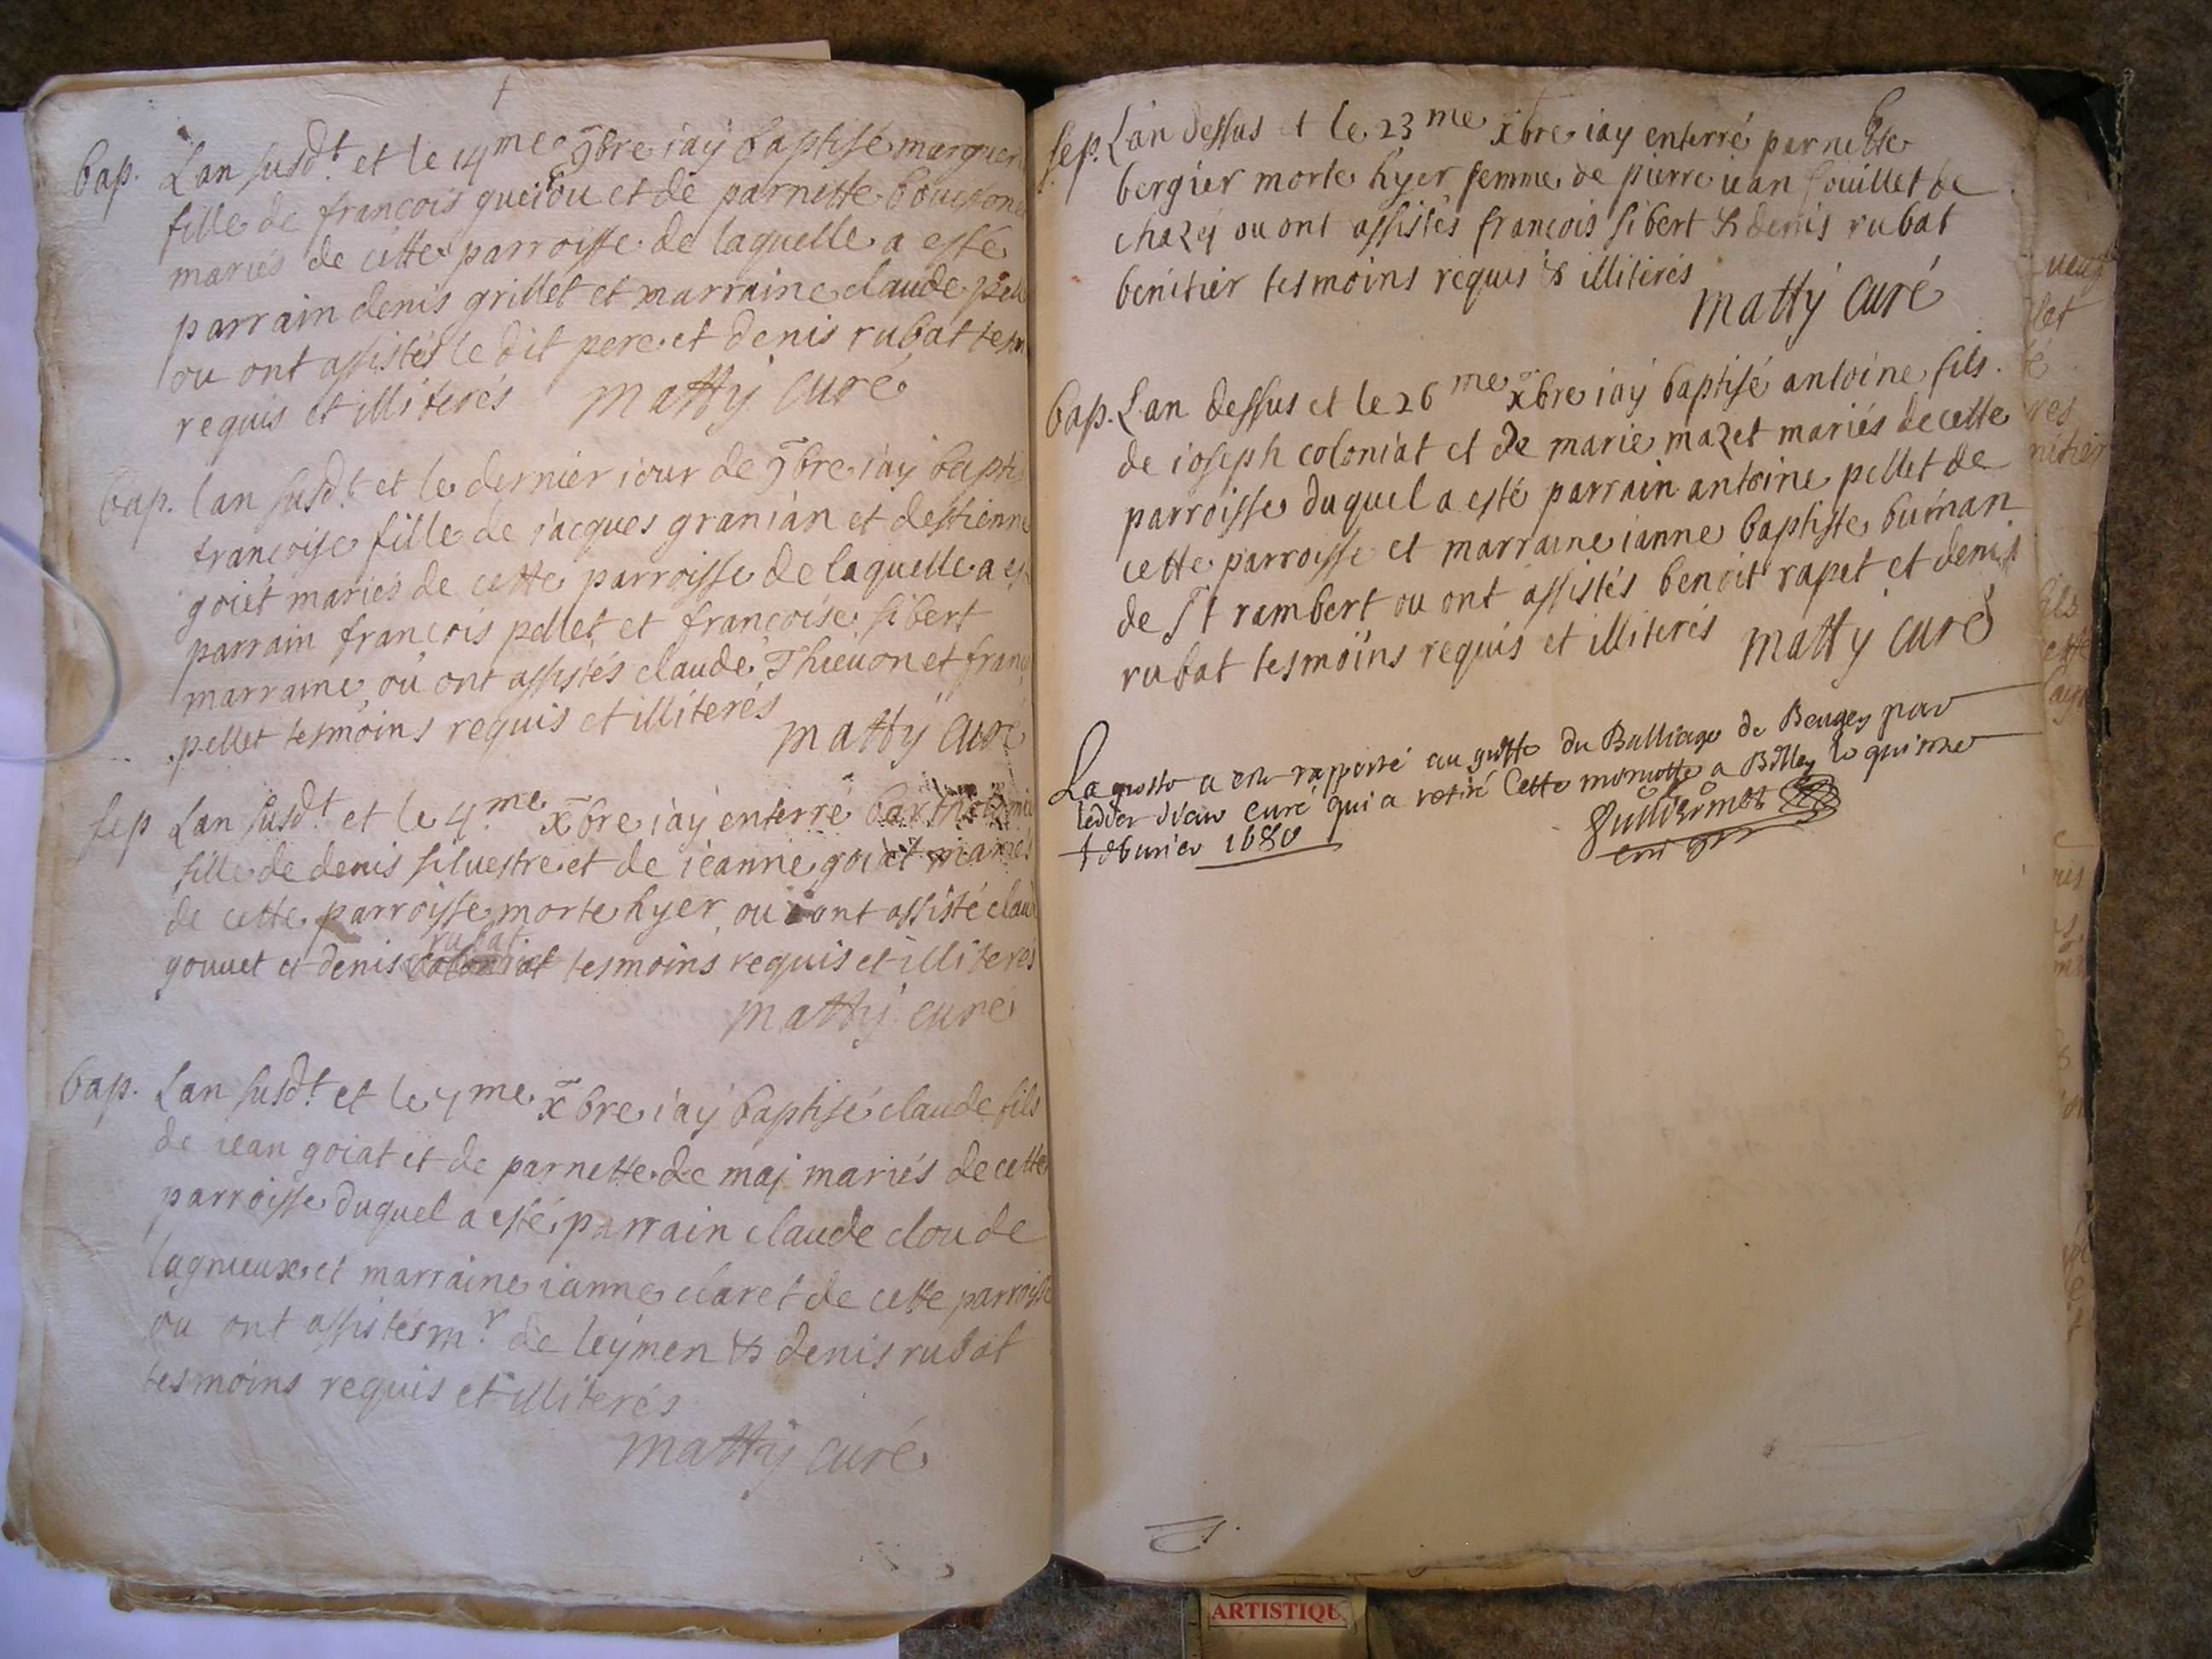 †
bap. Lan susd.t et le 14me 9bre iay baptisé marguer
fille de francois et de parnette
mariés de cette parroisse de laquelle a esté
parrain denis grillet et marraine claude pell
ou ont assistés le dit pere et denis rubat tesm
requis et illiterés matty curé
bap. lan susd.t et le dernier iour de 9bre iay bapti
francoise fille de iacques granian et destienne
goiet mariés de cette parroisse de laquelle a es
parrain francois pellet et francoise sibert
marraine, ou ont assistés claude Thieuon et franc
pellet tesmoins requis et illiterés
matty curé
sep Lan susd.t et le 4.me xbre iay enterré
fille de denis siluestre et de ieanne goiat mariés
de cette parroisse morte hyer, ou ont assisté clau
rubat
gouuet et denis tesmoins requis et illiterés
matty curé
bap. Lan susd.t et le 7me xbre iay baptisé claude fils
de iean goiat et de parnette de maj mariés de cette
parroisse duquel a esté parrain claude clou de
lagnieux et marraine ianne claret de cette parroisse
ou ont assistés m.r de leymen & denis rubat
tesmoins requis et illiterés
matty curé
sep. Lan dessus et le 23me xbre iay enterré parnette
bergier morte hyer femme de pierre iean souillet de
chazey ou ont assistés francois sibert & denis rubat
benitier tesmoins requis & illiterés
matty curé
bap. Lan dessus et le 26me xbre iay baptisé antoine fils
de ioseph coloniat et de marie mazet mariés de cette
parroisse duquel a esté parrain antoine pellet de
cette parroisse et marraine ianne baptiste buinan
de st rambert ou ont assistés benoit rapet et denis
rubat tesmoins requis et illiterés matty curé
La grosse a esté rapporté au greffe du Balliage de Beugey par
ledit sieur curé qui a retiré Cette minutte a Belley le quinze
febvrier 1680
ARTISTIQU